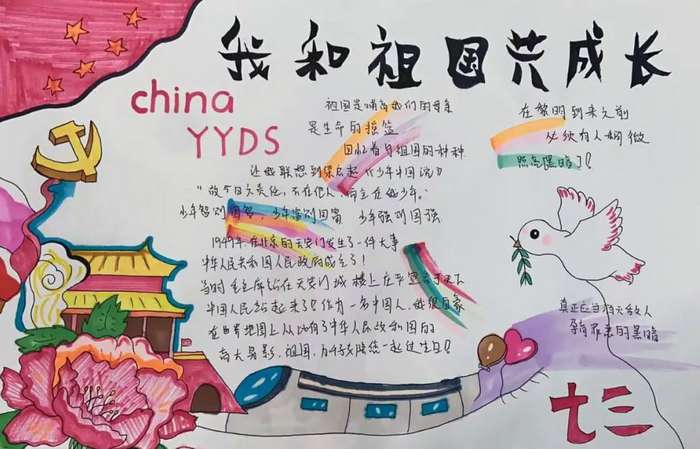 我和祖国共成长
china
YYDS
祖国是哺育我们的母亲
是生命的摇篮
回忆着与祖国的种种
让我联想到梁启超《少年中国说》
"故今日之责任，不在他人，而全在我少年。"
少年智则国智，少年富则国富 少年强则国强
1949年在北京的天安门发生了一件大事
中华人民共和国人民政府成立了！
当时毛主席站在天安门城楼上庄严宣告于天下
中国人民站起来了！作为一名中国人，
在世界地图上从此有了中华人民共和国的
祖国，
在黎明到来之前
必须有人稍微
照亮黑暗了！
真正应当
的黑暗
七三